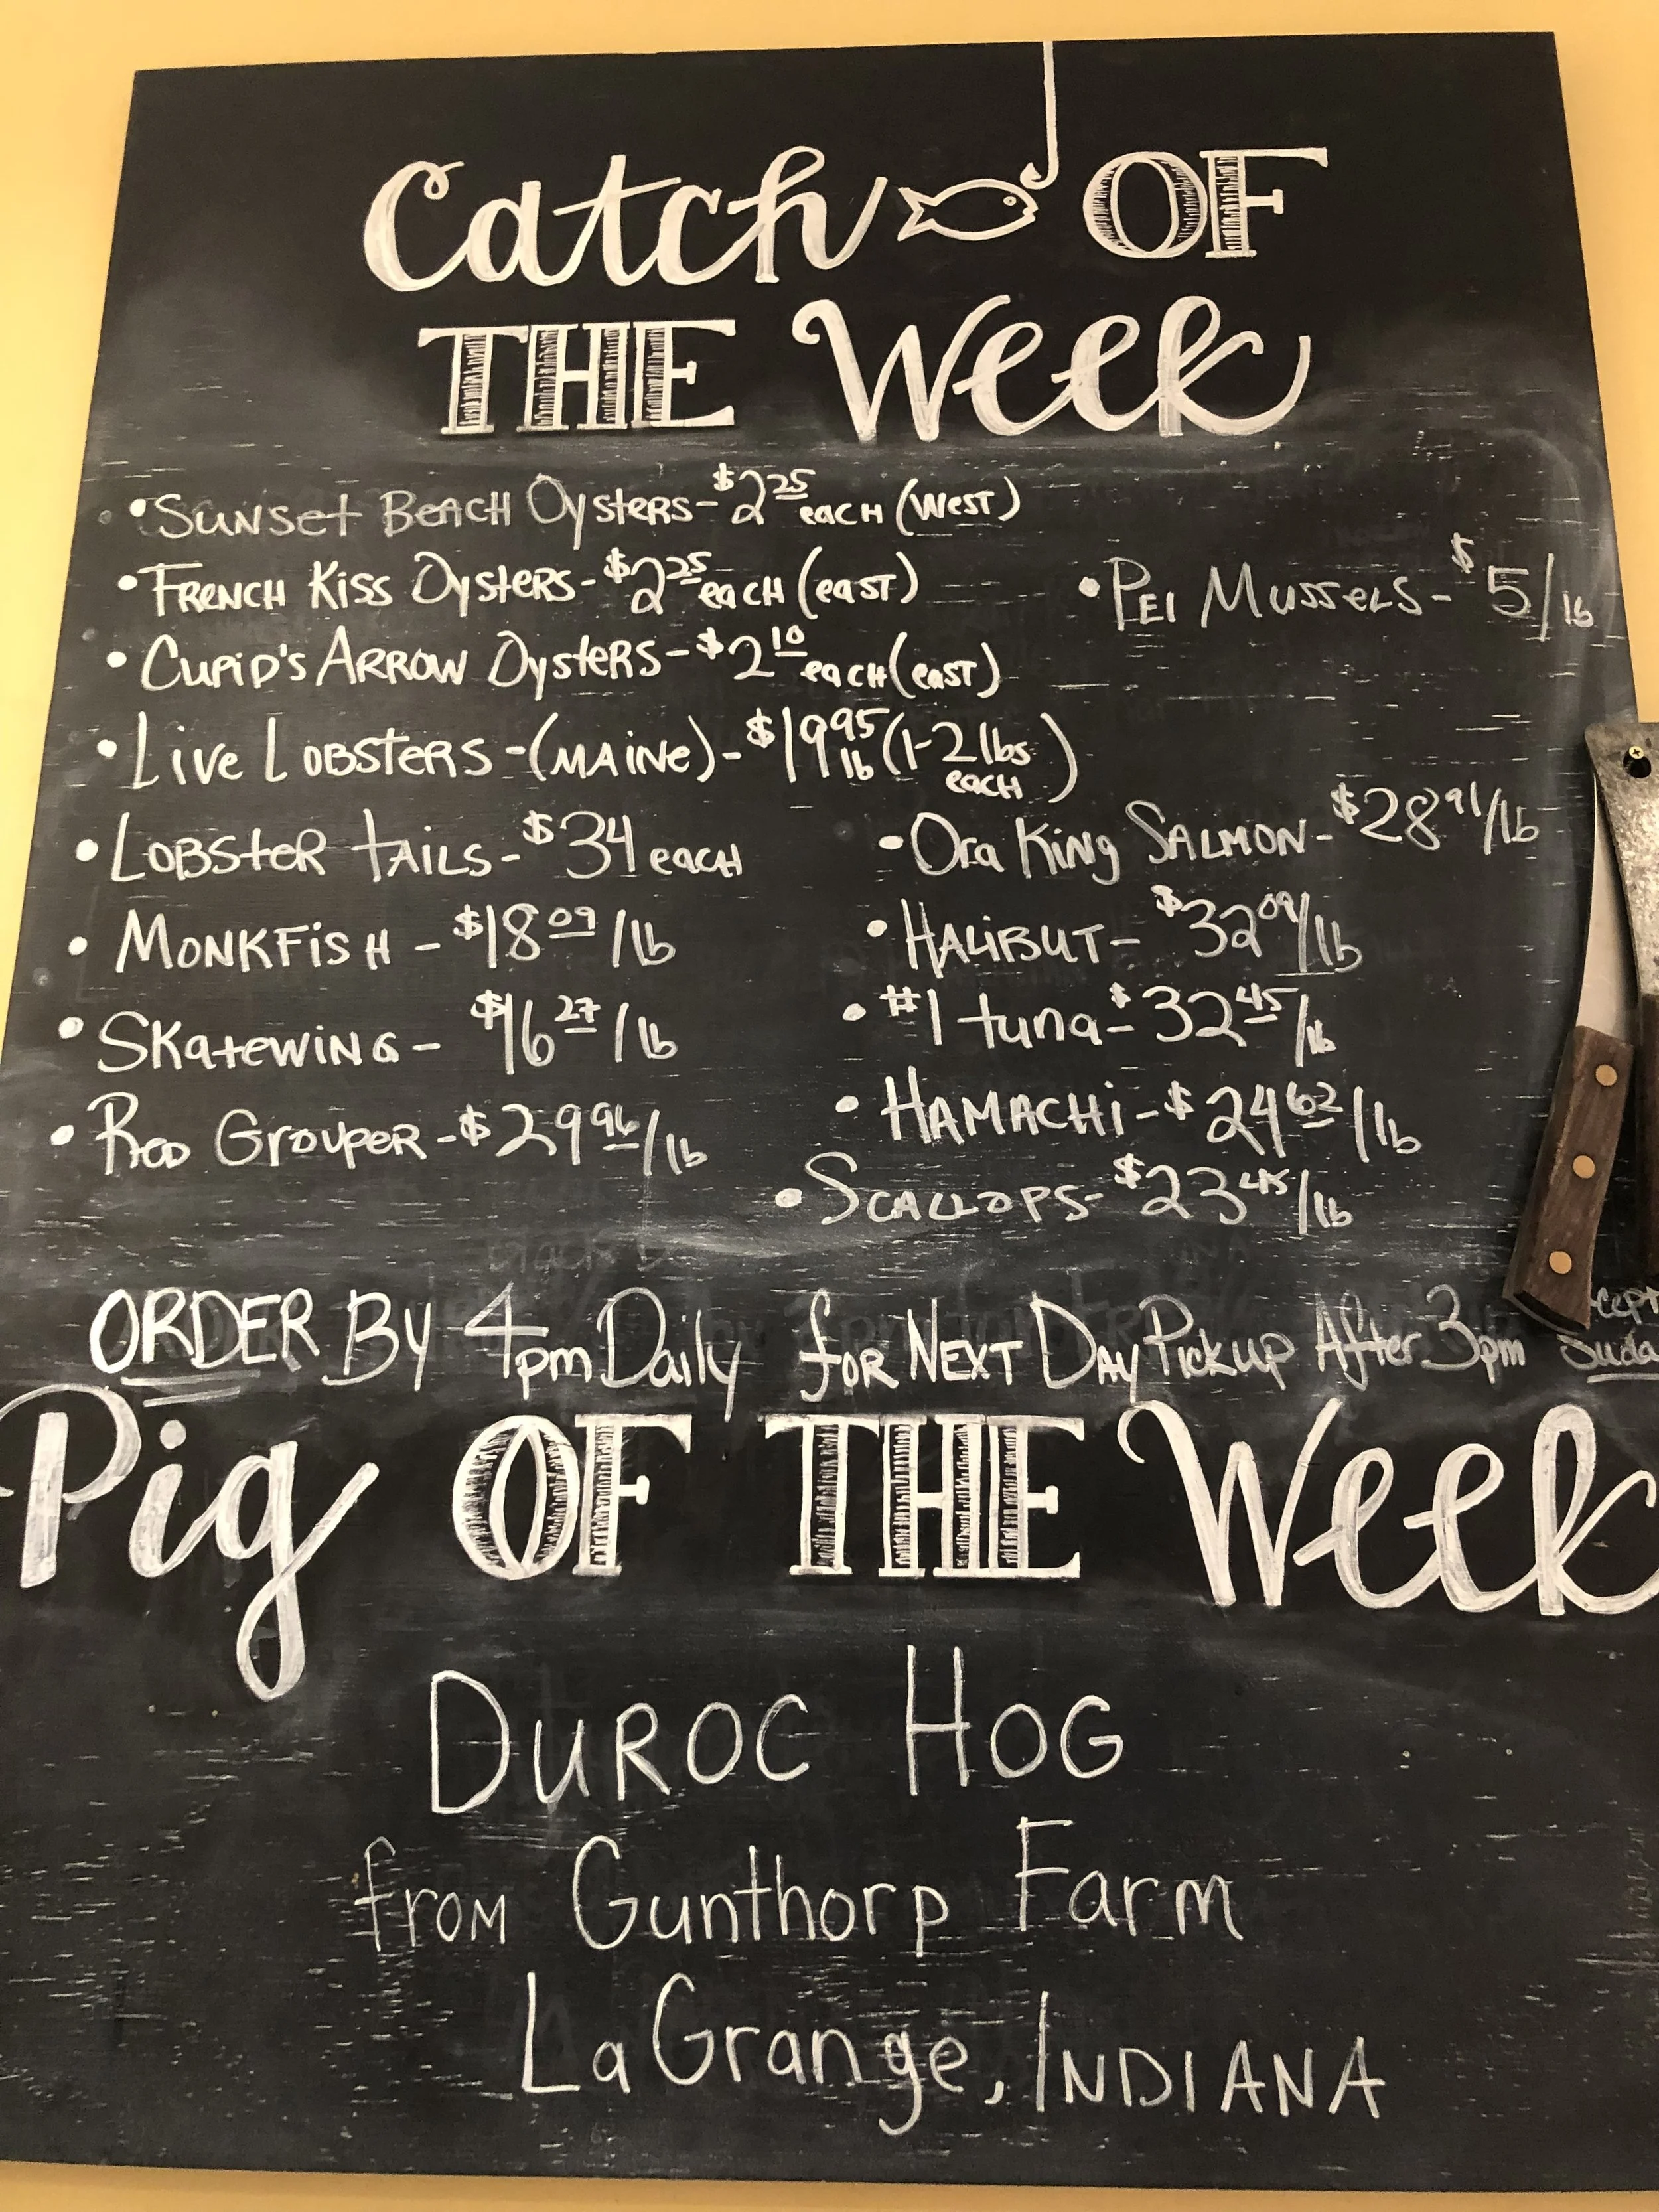 Catch OF
THE Week
• Sunset Beach Oysters - $2.25 each (West)
• French Kiss Oysters - $2.25 each (east)
• PEI Mussels - $5/lb
• Cupid's Arrow Oysters - $2.10 each (east)
• Live Lobsters - (Maine) - $19.95 lb (1-2 lbs each)
• Lobster tails - $34 each
• Ora King Salmon - $28.91/lb
• Monkfish - $18.09/lb
• Halibut - $32.09/lb
• Skatewing - $16.27/lb
• #1 tuna - $32.45/lb
• Red Grouper - $29.96/lb
• Hamachi - $24.62/lb
• Scallops - $23.45/lb
ORDER By 4pm Daily for Next Day Pickup After 3pm
Pig OF THE Week
Duroc Hog
from Gunthorp Farm
LaGrange, Indiana